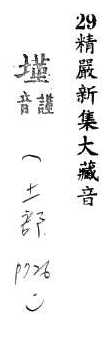 29精嚴新集大藏音
墐謹音
（土部 P726）